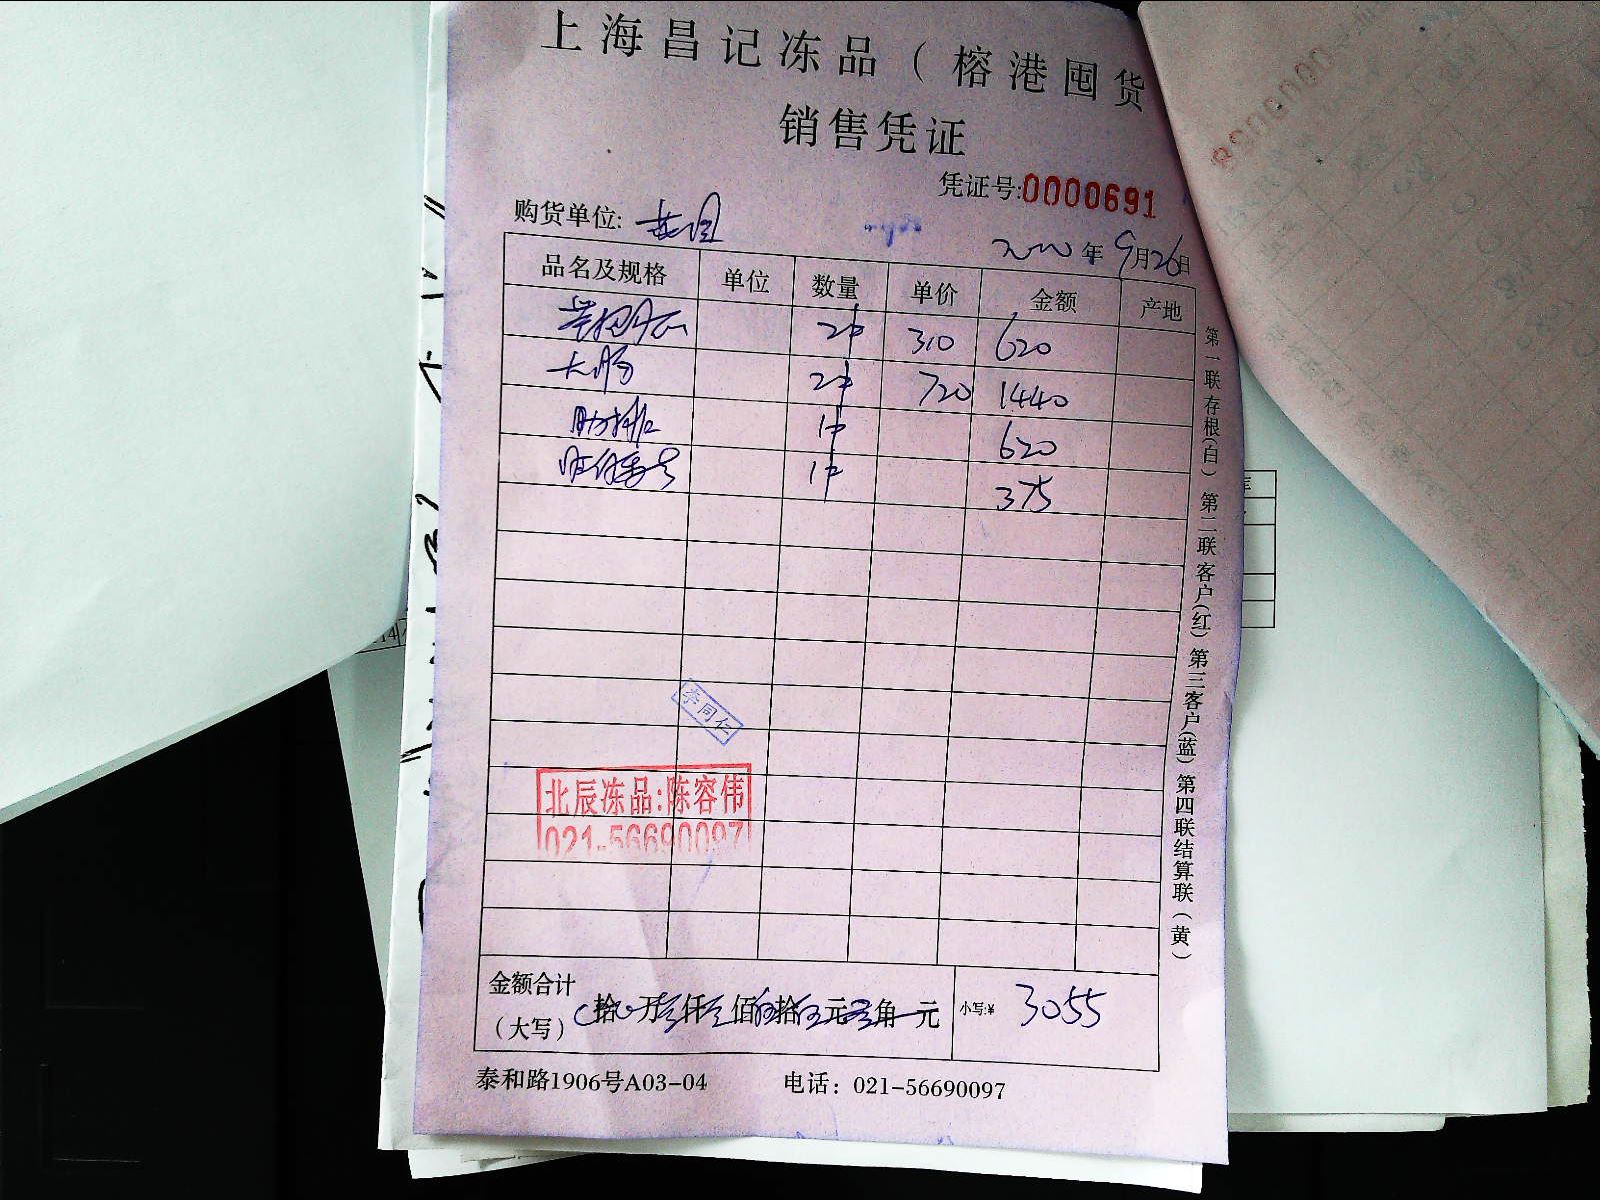 上海昌记冻品（榕港囤货
销售凭证
凭证号:0000691
购货单位:
年9月26日
品名及规格 单位 数量 单价 金额 产地
2件 310 620
大肠 2件 720 1440
肋排 1件 620
1件 375
李同仁
北辰冻品:陈容伟
021-56690097
金额合计
（大写） 拾 万 仟 佰 拾 元 角 元 小写:¥ 3055
泰和路1906号A03-04 电话：021-56690097
第一联存根(白) 第二联客户(红) 第三客户(蓝) 第四联结算联(黄)